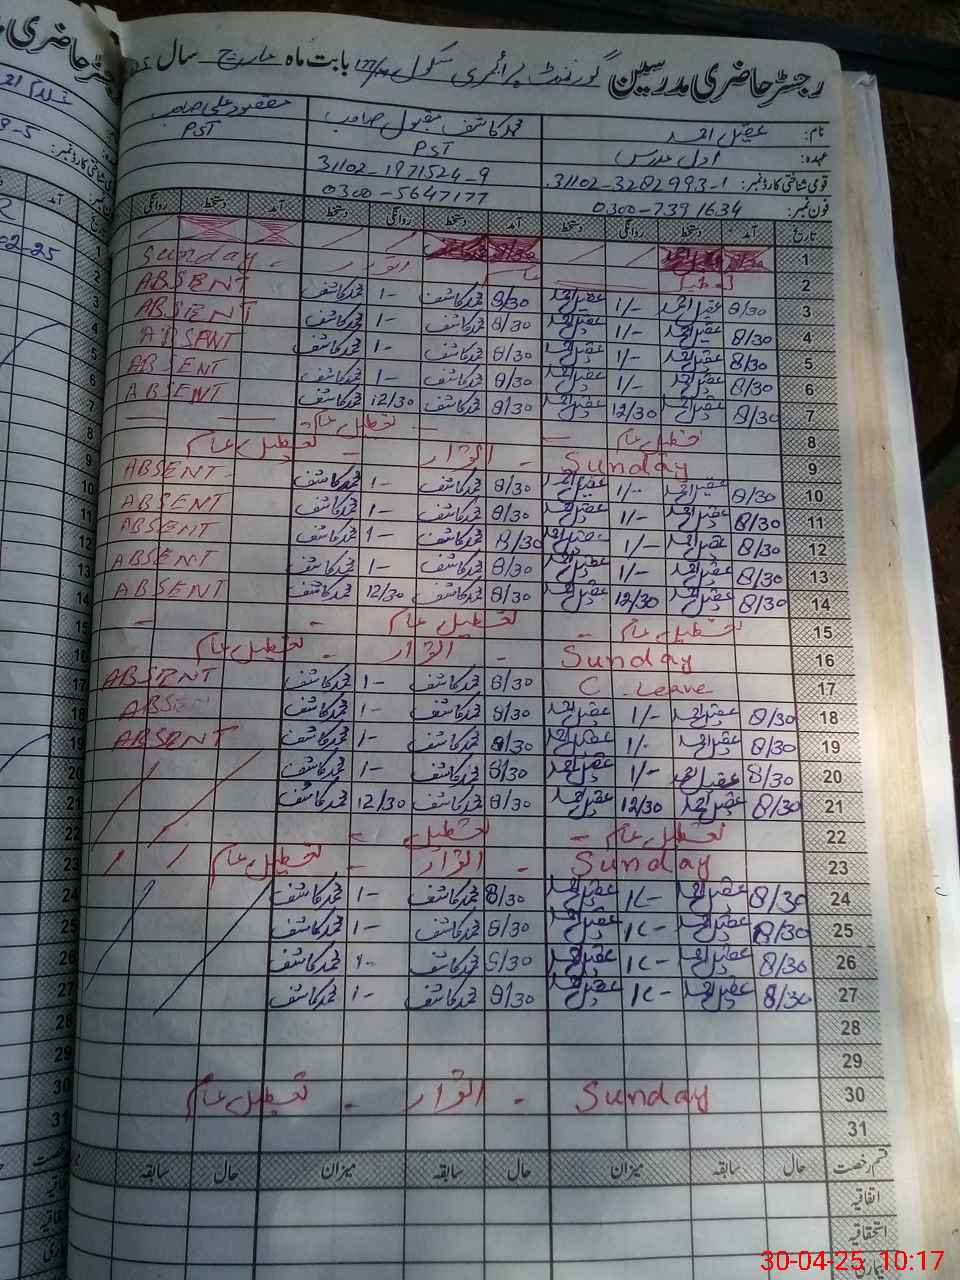 رجسٹر حاضری مدرسین گورنمنٹ پرائمری سکول بابت ماہ مارچ سال
نام: عقیل احمد محمد کاشف مقبول صاحب مقصود علی صاحب
عہدہ: اول مدرس PST PST
قومی شناختی کارڈ نمبر: 31102-3282993-1 31102-1971524-9
فون نمبر: 0300-7391634 0300-5647177
تاریخ آمد دستخط روانگی دستخط آمد دستخط روانگی دستخط آمد دستخط روانگی
1
2 تعطیل عام اتوار Sunday
3 8/30 عقیل احمد 1/- عقیل احمد 8/30 محمد کاشف 1- محمد کاشف ABSENT
4 8/30 عقیل احمد 1/- عقیل احمد 8/30 محمد کاشف 1- محمد کاشف ABSENT
5 8/30 عقیل احمد 1/- عقیل احمد 8/30 محمد کاشف 1- محمد کاشف ABSENT
6 8/30 عقیل احمد 1/- عقیل احمد 8/30 محمد کاشف 1- محمد کاشف ABSENT
7 8/30 عقیل احمد 12/30 عقیل احمد 8/30 محمد کاشف 12/30 محمد کاشف ABSENT
8 تعطیل عام - تعطیل عام
9 Sunday - اتوار - تعطیل عام
10 8/30 عقیل احمد 1/- عقیل احمد 8/30 محمد کاشف 1- محمد کاشف ABSENT
11 8/30 عقیل احمد 1/- عقیل احمد 8/30 محمد کاشف 1- محمد کاشف ABSENT
12 8/30 عقیل احمد 1/- عقیل احمد 8/30 محمد کاشف 1- محمد کاشف ABSENT
13 8/30 عقیل احمد 1/- عقیل احمد 8/30 محمد کاشف 1- محمد کاشف ABSENT
14 8/30 عقیل احمد 12/30 عقیل احمد 8/30 محمد کاشف 12/30 محمد کاشف ABSENT
15 تعطیل عام - تعطیل عام -
16 Sunday - اتوار - تعطیل عام
17 C. Leave 8/30 محمد کاشف 1- محمد کاشف ABSENT
18 8/30 عقیل احمد 1/- عقیل احمد 8/30 محمد کاشف 1- محمد کاشف ABSENT
19 8/30 عقیل احمد 1/- عقیل احمد 8/30 محمد کاشف 1- محمد کاشف ABSENT
20 8/30 عقیل احمد 1/- عقیل احمد 8/30 محمد کاشف 1- محمد کاشف
21 8/30 عقیل احمد 12/30 عقیل احمد 8/30 محمد کاشف 12/30 محمد کاشف
22 تعطیل عام - تعطیل -
23 Sunday - اتوار - تعطیل عام
24 8/30 عقیل احمد 1/- عقیل احمد 8/30 محمد کاشف 1- محمد کاشف
25 8/30 عقیل احمد 1/- عقیل احمد 8/30 محمد کاشف 1- محمد کاشف
26 8/30 عقیل احمد 1/- عقیل احمد 8/30 محمد کاشف 1- محمد کاشف
27 8/30 عقیل احمد 1/- عقیل احمد 8/30 محمد کاشف 1- محمد کاشف
28
29
30 Sunday - اتوار - تعطیل عام
31
قسم رخصت حال سابقہ میزان حال سابقہ میزان حال سابقہ
اتفاقیہ
استحقاقیہ
بیماری
30-04-25 10:17